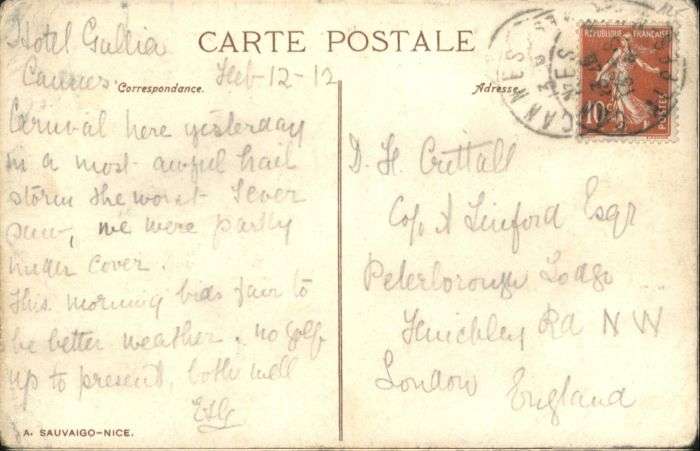 Hotel Gallia
CARTE POSTALE
Cannes Feb-12-12
Correspondance.
Adresse
Carnival here yesterday
in a most awful hail
storm the worst I ever
saw, we were partly
under cover.
This morning bids fair to
be better weather. no golf
up to present, both well
A. SAUVAIGO-NICE.
CANNES
REPUBLIQUE FRANÇAISE
10c
POSTES
D. H. Crittall
C/o A Linford Esqr
Peterborough Lodge
Finchley Rd N W
London England